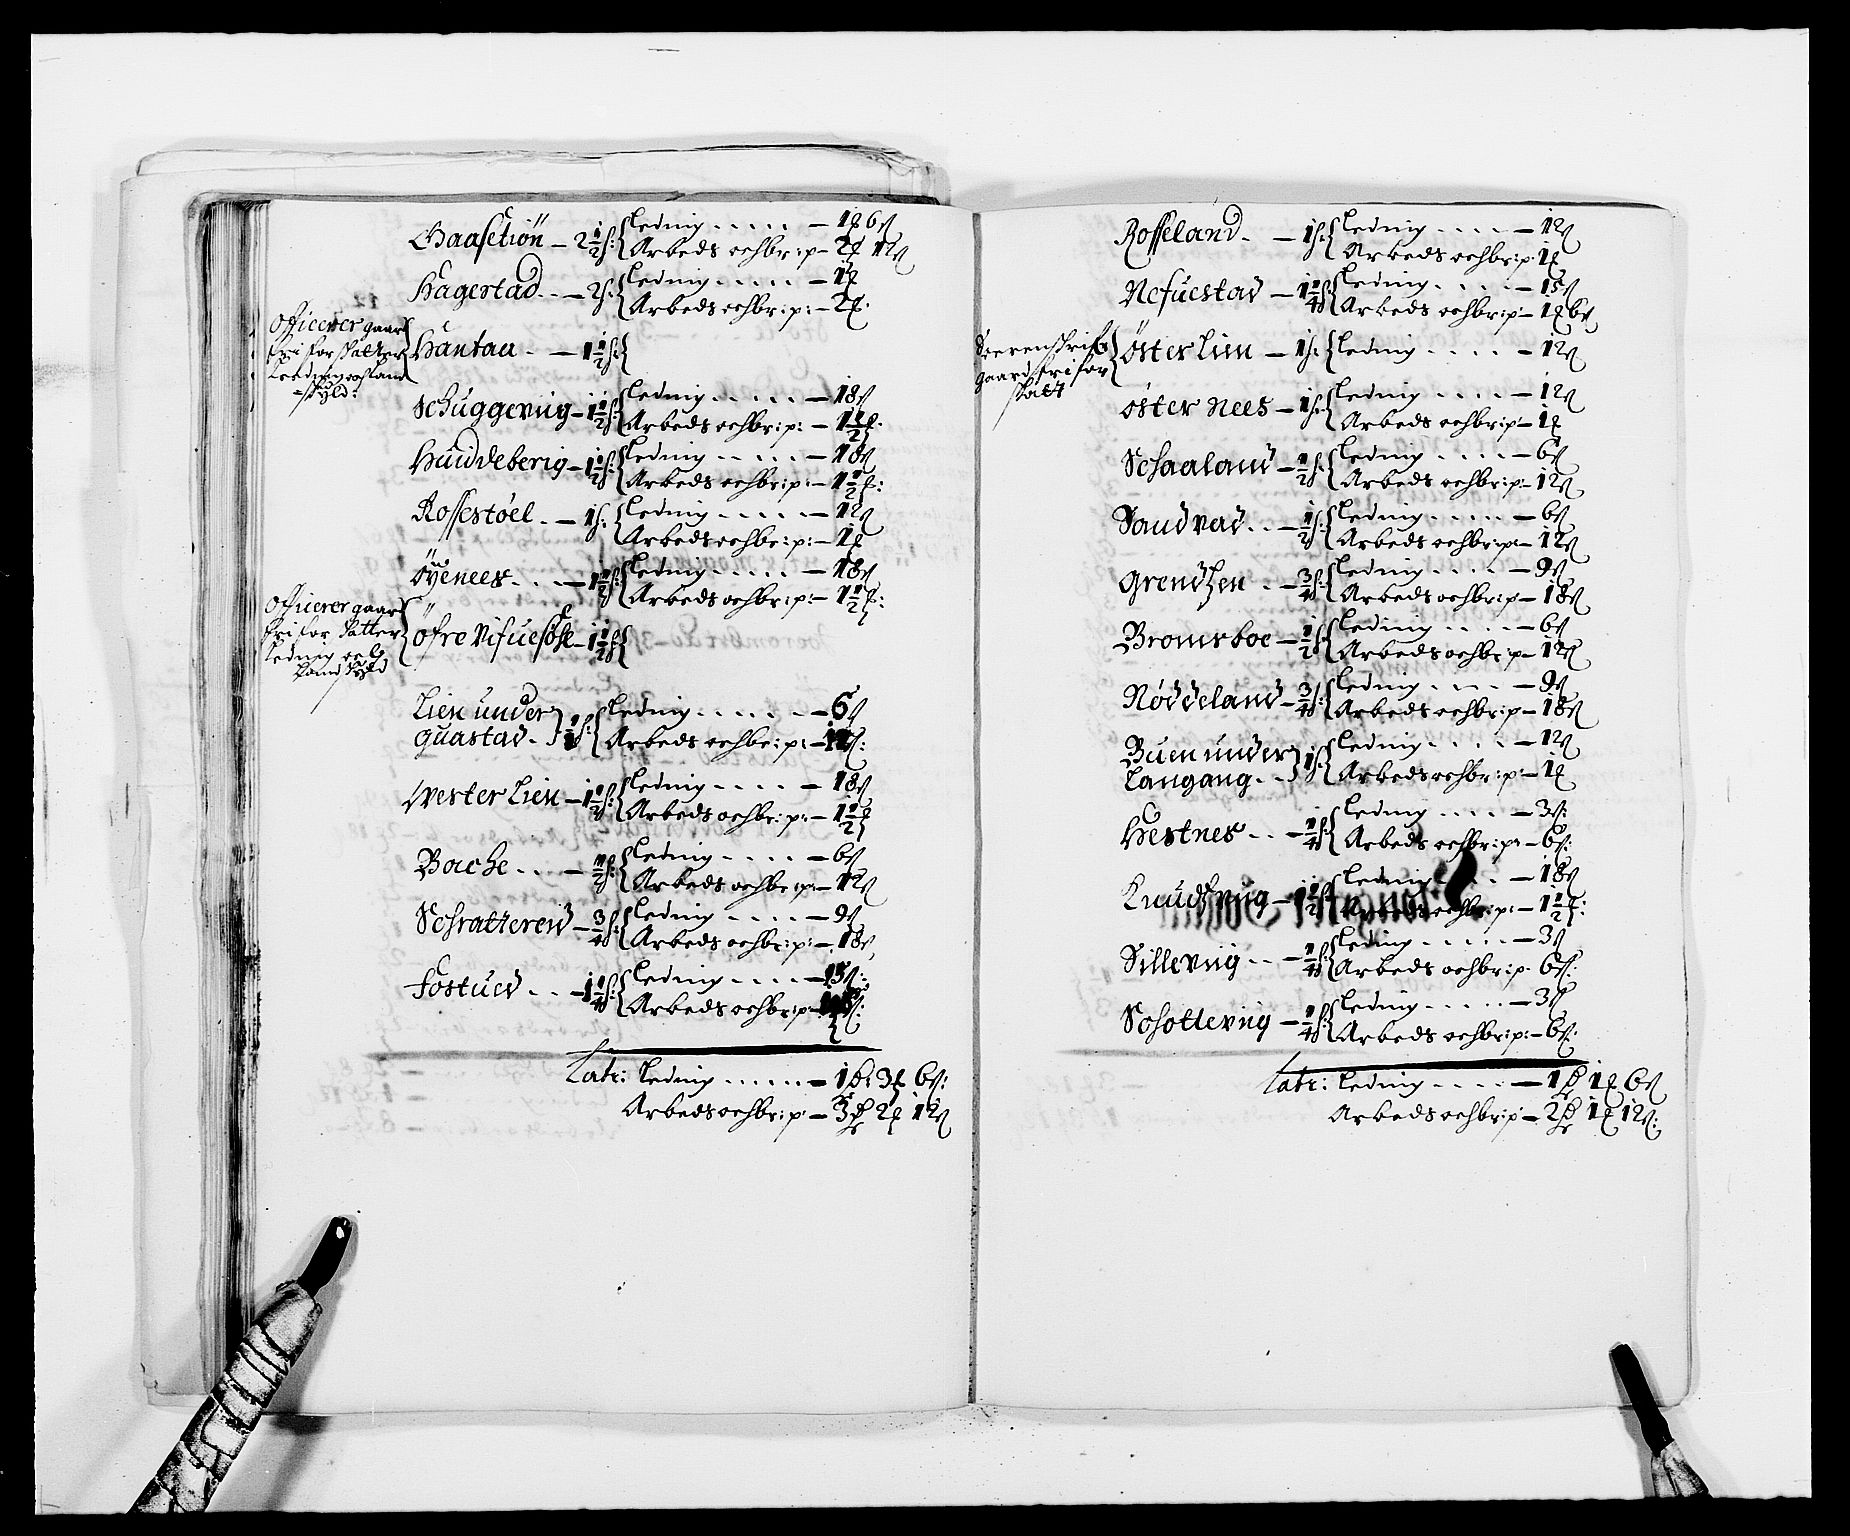 Gaasetiön – 2½ s: { Leding – 1 ƶ 6 ß
Arbeds oc hbr: p – 2 ƶ 12 ß
Hågestad – 2 s: { Leding – 1 ƶ
Arbeds oc hbr: p: – 2 ƶ:
Officerer gaar
fri for skatter
Leeding och land
-skyld:
Håntau – 1½ s: {
Schuggevиig – 1½ s: { Leding – 18 ß
Arbeds oc hbr: p: – 1½ ƶ:
Huudeberig – 1½ s: { Leding – 18 ß
Arbeds oc hbr: p: – 1½ ƶ:
Rossestöel – 1 s: { Leding – 12 ß
Arbeds oc hbr: p: – 1 ƶ
Öyenees – 1½ s: { Leding – 18 ß
Arbeds oc hbr: p: – 1½ ƶ:
Officerer gaar
fri for Satter
Leding och
Land skyld
Öfre Nifuesöhe – 1½ s: {
Lien under
quastad – ½ s: { Leding – 6 ß
Arbeds oc hbr: p: – 12 ß:
Wester Lien – 1½ s: { Leding – 18 ß
Arbeds oc hbr: p: – 1½ ƶ
Bache – ½ s: { Leding – 6 ß
Arbeds oc hbr: p: – 12 ß
Schratzereid – ¾ s: { Leding – 9 ß
Arbeds oc hbr: p: – 18 ß
Fostued – 1¼ s: { Leding – 15 ß:
Arbeds oc hbr: p –
Latr: Leding – 1 rd: 3 ƶ 6 ß:
Arbeds oc hbr: p – 3 rd 2 ƶ 12 ß
Rosseland – 1 s: { Leding – 12 ß
Arbeds oc hbr: p: 1 ƶ
Nefuestad – 1¼ s: { Leding – 15 ß
Arbeds oc hbr: p – 1 ƶ 6 ß
Sorenskrif:
gaard fri for
skatt
Öster Lien – 1 s: { Leding – 12 ß
öster Nees – 1 s: { Leding – 12 ß
Arbeds oc hbr: p – 1 ƶ
Schaaland – ½ s: { Leding – 6 ß
Arbeds oc hbr: p – 12 ß
Sandvad – ½ s: { Leding – 6 ß
Arbeds oc hbr: p – 12 ß
Grendzen – ¾ s: { Leding – 9 ß
Arbeds oc hbr: p – 18 ß
Bromsboe – ½ s: { Leding – 6 ß
Arbeds oc hbr: p – 12 ß
Nöddeland – ¾ s: { Leding – 9 ß
Arbeds oc hbr: p – 18 ß
Buen under
Langang – 1 s: { Leding – 12 ß
Arbeds oc hbr: p – 1 ƶ
Hestnes – ¼ s: { Leding – 3 ß:
Arbeds oc hbr: p: – 6 ß:
Knudzvиig – 1½ s: { Leding – 18 ß
Arbeds oc hbr: p: – 1½ ƶ:
Sillevиig – ¼ s: { Leding – 3 ß
Arbeds oc hbr: p. 6 ß:
Schottevиig – ¼ s: { Leding – 3 ß
Arbeds oc hbr: p: – 6 ß:
Latr: Leding – 1 rd 1 ƶ 6 ß
Arbeds oc hbr: p – 2 rd 1 ƶ 12 ß: